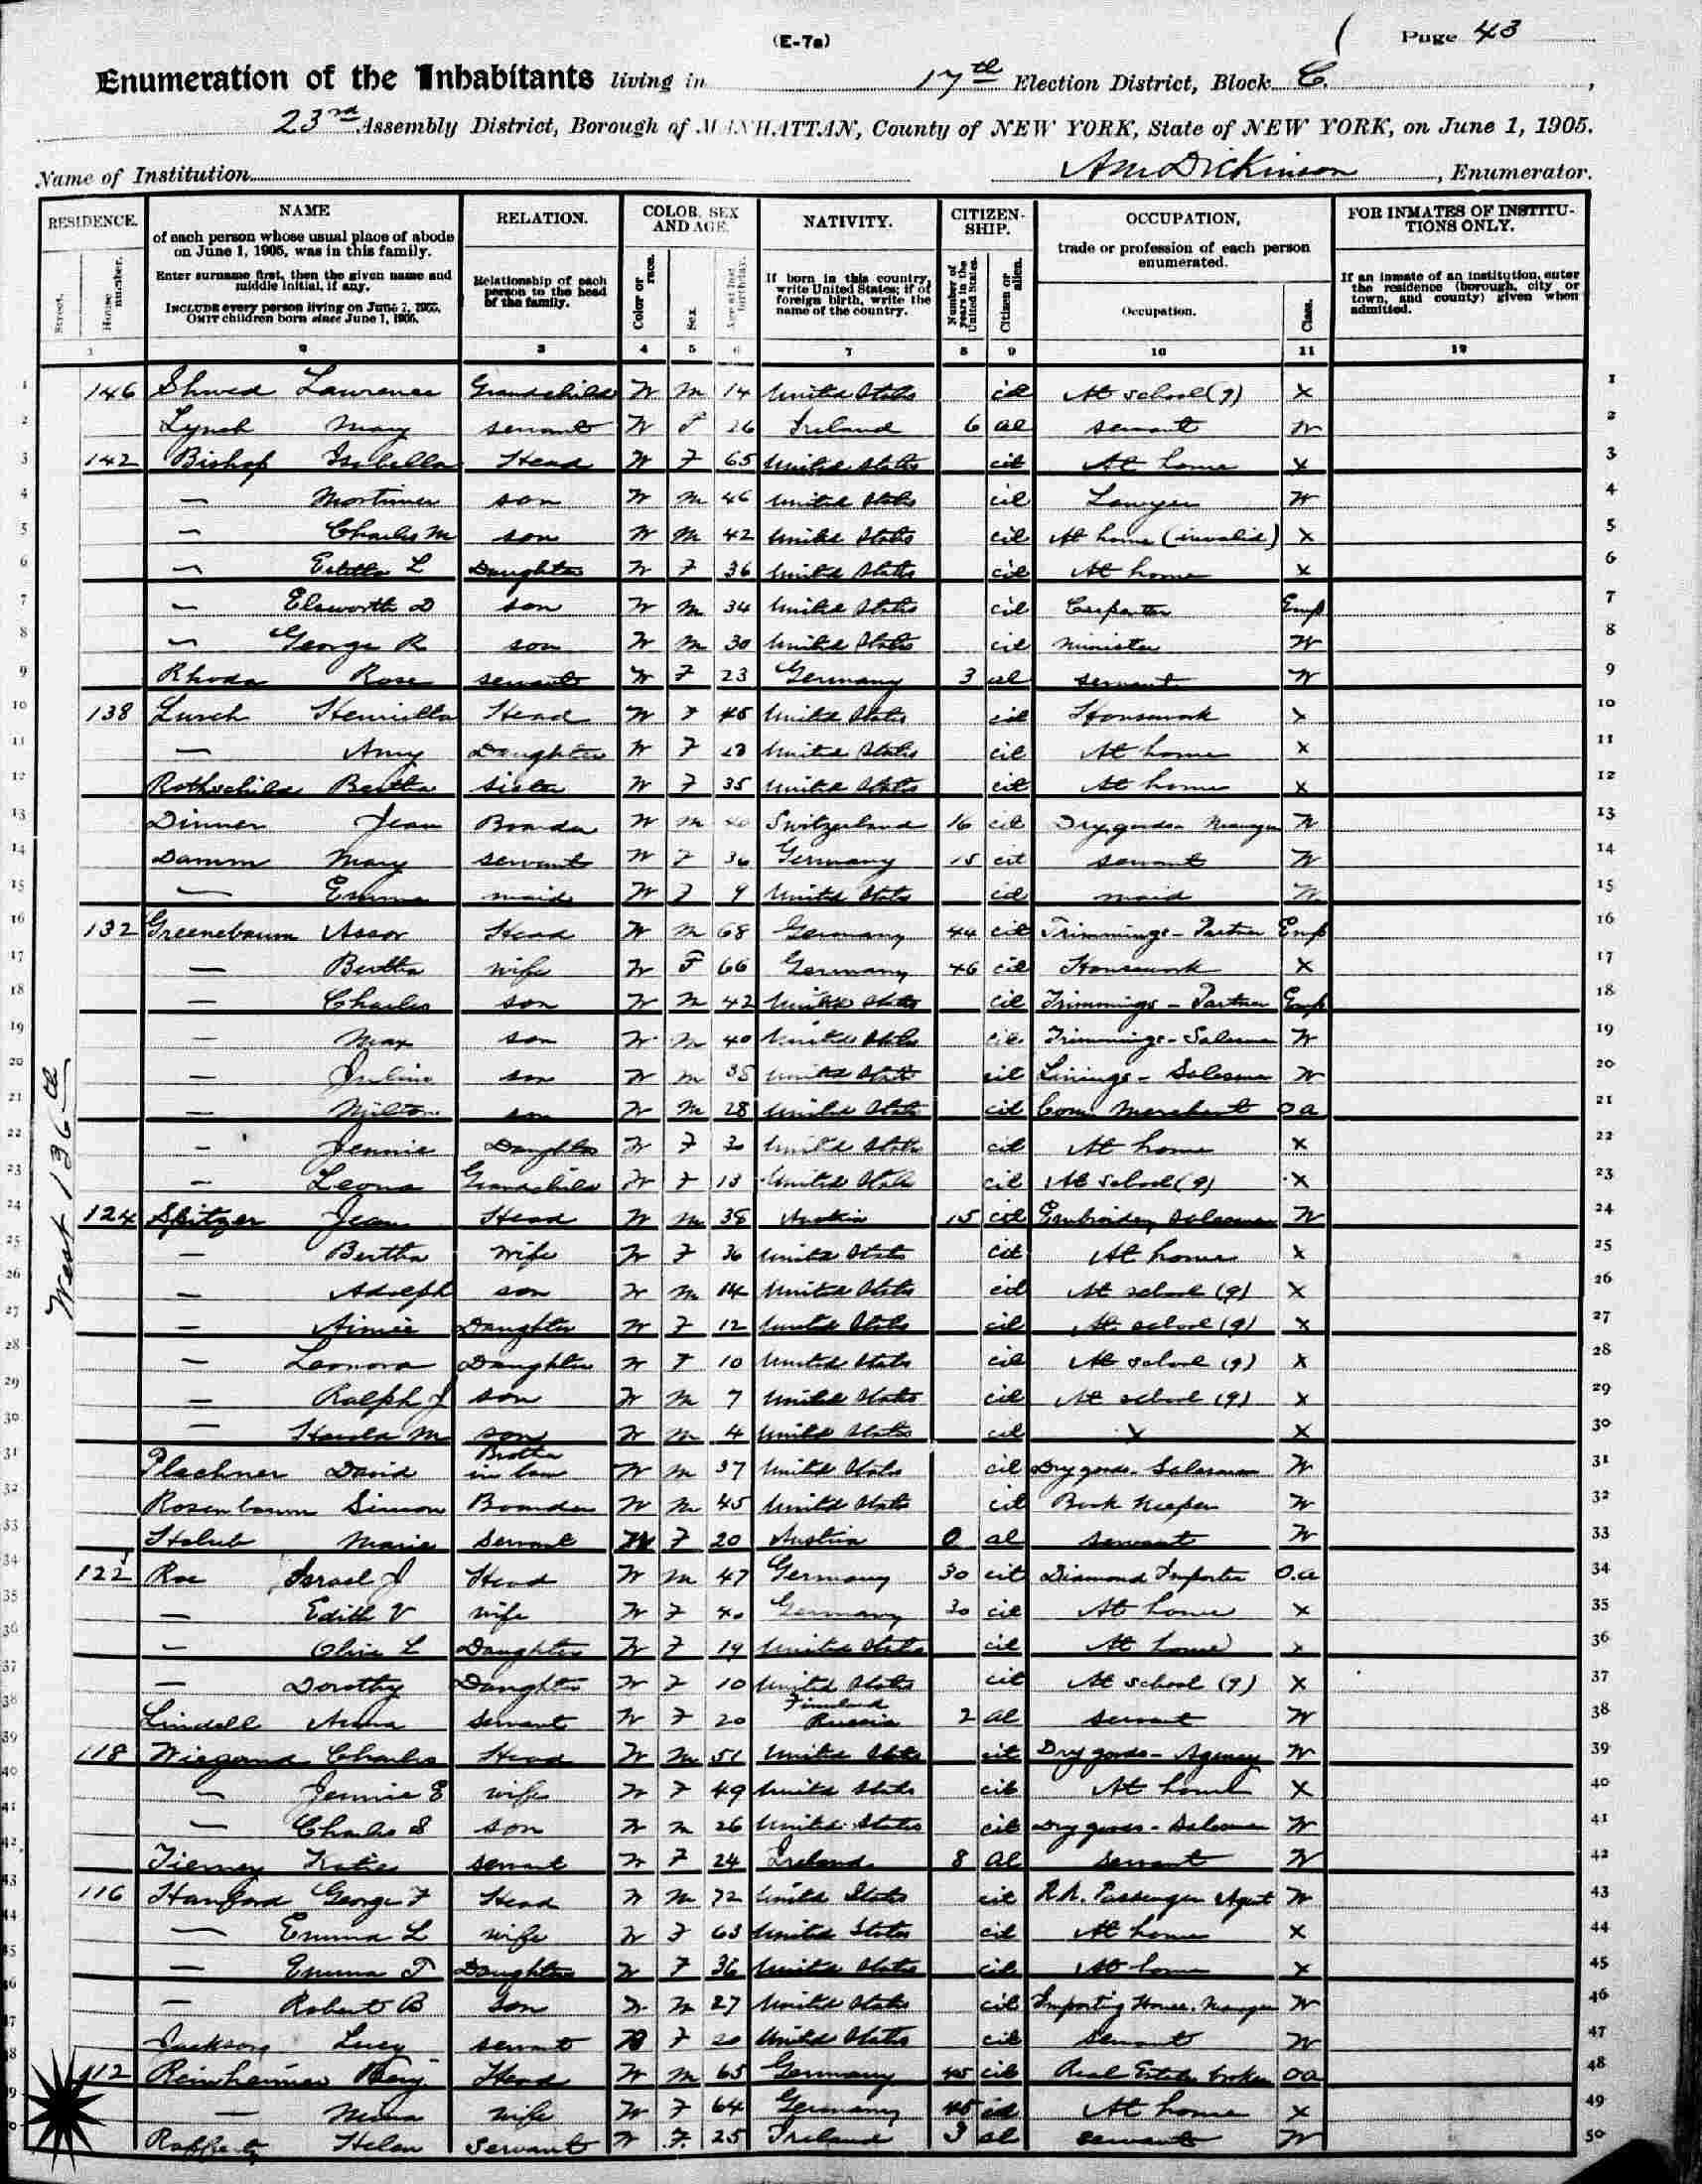 (E-7a)
Page 43
Enumeration of the Inhabitants living in 17th Election District, Block C.,
23rd Assembly District, Borough of MANHATTAN, County of NEW YORK, State of NEW YORK, on June 1, 1905.
Name of Institution A M Dickinson, Enumerator.
RESIDENCE. Street. House number.
NAME of each person whose usual place of abode on June 1, 1905, was in this family.
Enter surname first, then the given name and middle initial, if any.
INCLUDE every person living on June 1, 1905. OMIT children born since June 1, 1905.
RELATION. Relationship of each person to the head of the family.
COLOR, SEX AND AGE. Color or race. Sex. Age at last birthday.
NATIVITY. If born in this country, write United States; if of foreign birth, write the name of the country.
CITIZENSHIP. Number of years in the United States. Citizen or alien.
OCCUPATION, trade or profession of each person enumerated. Occupation. Class.
FOR INMATES OF INSTITUTIONS ONLY. If an inmate of an institution, enter the residence (borough, city or town, and county) given when admitted.
1 2 3 4 5 6 7 8 9 10 11 12
West 136th
1 146 Shwed Lawrence Grandchild W M 14 United States cit At school (9) X 1
2 Lynch Mary servant W F 26 Ireland 6 al servant W 2
3 142 Bishop Isabella Head W F 65 United States cit At home X 3
4 — Mortimer son W M 46 United States cit Lawyer W 4
5 — Charles M son W M 42 United States cit At home (invalid) X 5
6 — Estella L Daughter W F 36 United States cit At home X 6
7 — Elsworth D son W M 34 United States cit Carpenter Emp 7
8 — George R son W M 30 United States cit Minister W 8
9 Rhoda Rose servant W F 23 Germany 3 al servant W 9
10 138 Lurch Henrietta Head W F 45 United States cit Housework X 10
11 — Amy Daughter W F United States cit At home X 11
12 Rothschild Bertha sister W F 35 United States cit At home X 12
13 Dinner Jean Boarder W M Switzerland 16 cit Dry goods - Manager W 13
14 Damm Mary servant W F 36 Germany 15 cit servant W 14
15 — Emma maid W F 9 United States cit maid W 15
16 132 Greenebaum Assor Head W M 68 Germany 44 cit Trimmings - Partner Emp 16
17 — Bertha wife W F 66 Germany 46 cit Housework X 17
18 — Charles son W M 42 United States cit Trimmings - Partner Emp 18
19 — Max son W M 40 United States cit Trimmings - Salesman W 19
20 — Julius son W M 38 United States cit Linings - Salesman W 20
21 — Milton son W M 28 United States cit Com Merchant O a 21
22 — Jennie Daughter W F United States cit At home X 22
23 — Leona Grandchild W F 13 United States cit At School (9) X 23
24 124 Spitzer Jean Head W M 38 Austria 15 cit Embroidery Salesman W 24
25 — Bertha Wife W F 36 United States cit At home X 25
26 — Adolph son W M 14 United States cit At school (9) X 26
27 — Aimee Daughter W F 12 United States cit At school (9) X 27
28 — Leonora Daughter W F 10 United States cit At school (9) X 28
29 — Ralph J son W M 7 United States cit At school (9) X 29
30 — Harold M son W M 4 United States cit X X 30
31 Plachner David Brother in law W M 37 United States cit Dry goods - Salesman W 31
32 Rosenbaum Simon Boarder W M 45 United States cit Book Keeper W 32
33 Holub Marie Servant W F 20 Austria 0 al servant W 33
34 122 Roe Israel J Head W M 47 Germany 30 cit Diamond Importer O.a 34
35 — Edith V wife W F 40 Germany 30 cit At home X 35
36 — Olive L Daughter W F 19 United States cit At home X 36
37 — Dorothy Daughter W F 10 United States cit At school (9) X 37
38 Lindell Anna Servant W F 20 Finland Russia 2 al servant W 38
39 118 Wiegand Charles Head W M 51 United States cit Dry goods - Agency W 39
40 — Jennie E wife W F 49 United States cit At home X 40
41 — Charles S son W M 26 United States cit Dry goods - Salesman W 41
42 Tierney Katie servant W F 24 Ireland 8 al Servant W 42
43 116 Hanford George F Head W M 72 United States cit R.R. Passenger Agent W 43
44 — Emma L wife W F 63 United States cit At home X 44
45 — Emma T Daughter W F 36 United States cit At home X 45
46 — Robert B Son W M 27 United States cit Importing House. Manager W 46
47 Jackson Lucy servant B F 20 United States cit Servant W 47
48 112 Reinheimer Benj. Head W M 65 Germany 45 cit Real Estate broker O a 48
49 — Mina wife W F 64 Germany 45 cit At home X 49
50 Rafferty Helen Servant W F 25 Ireland 3 al servant W 50